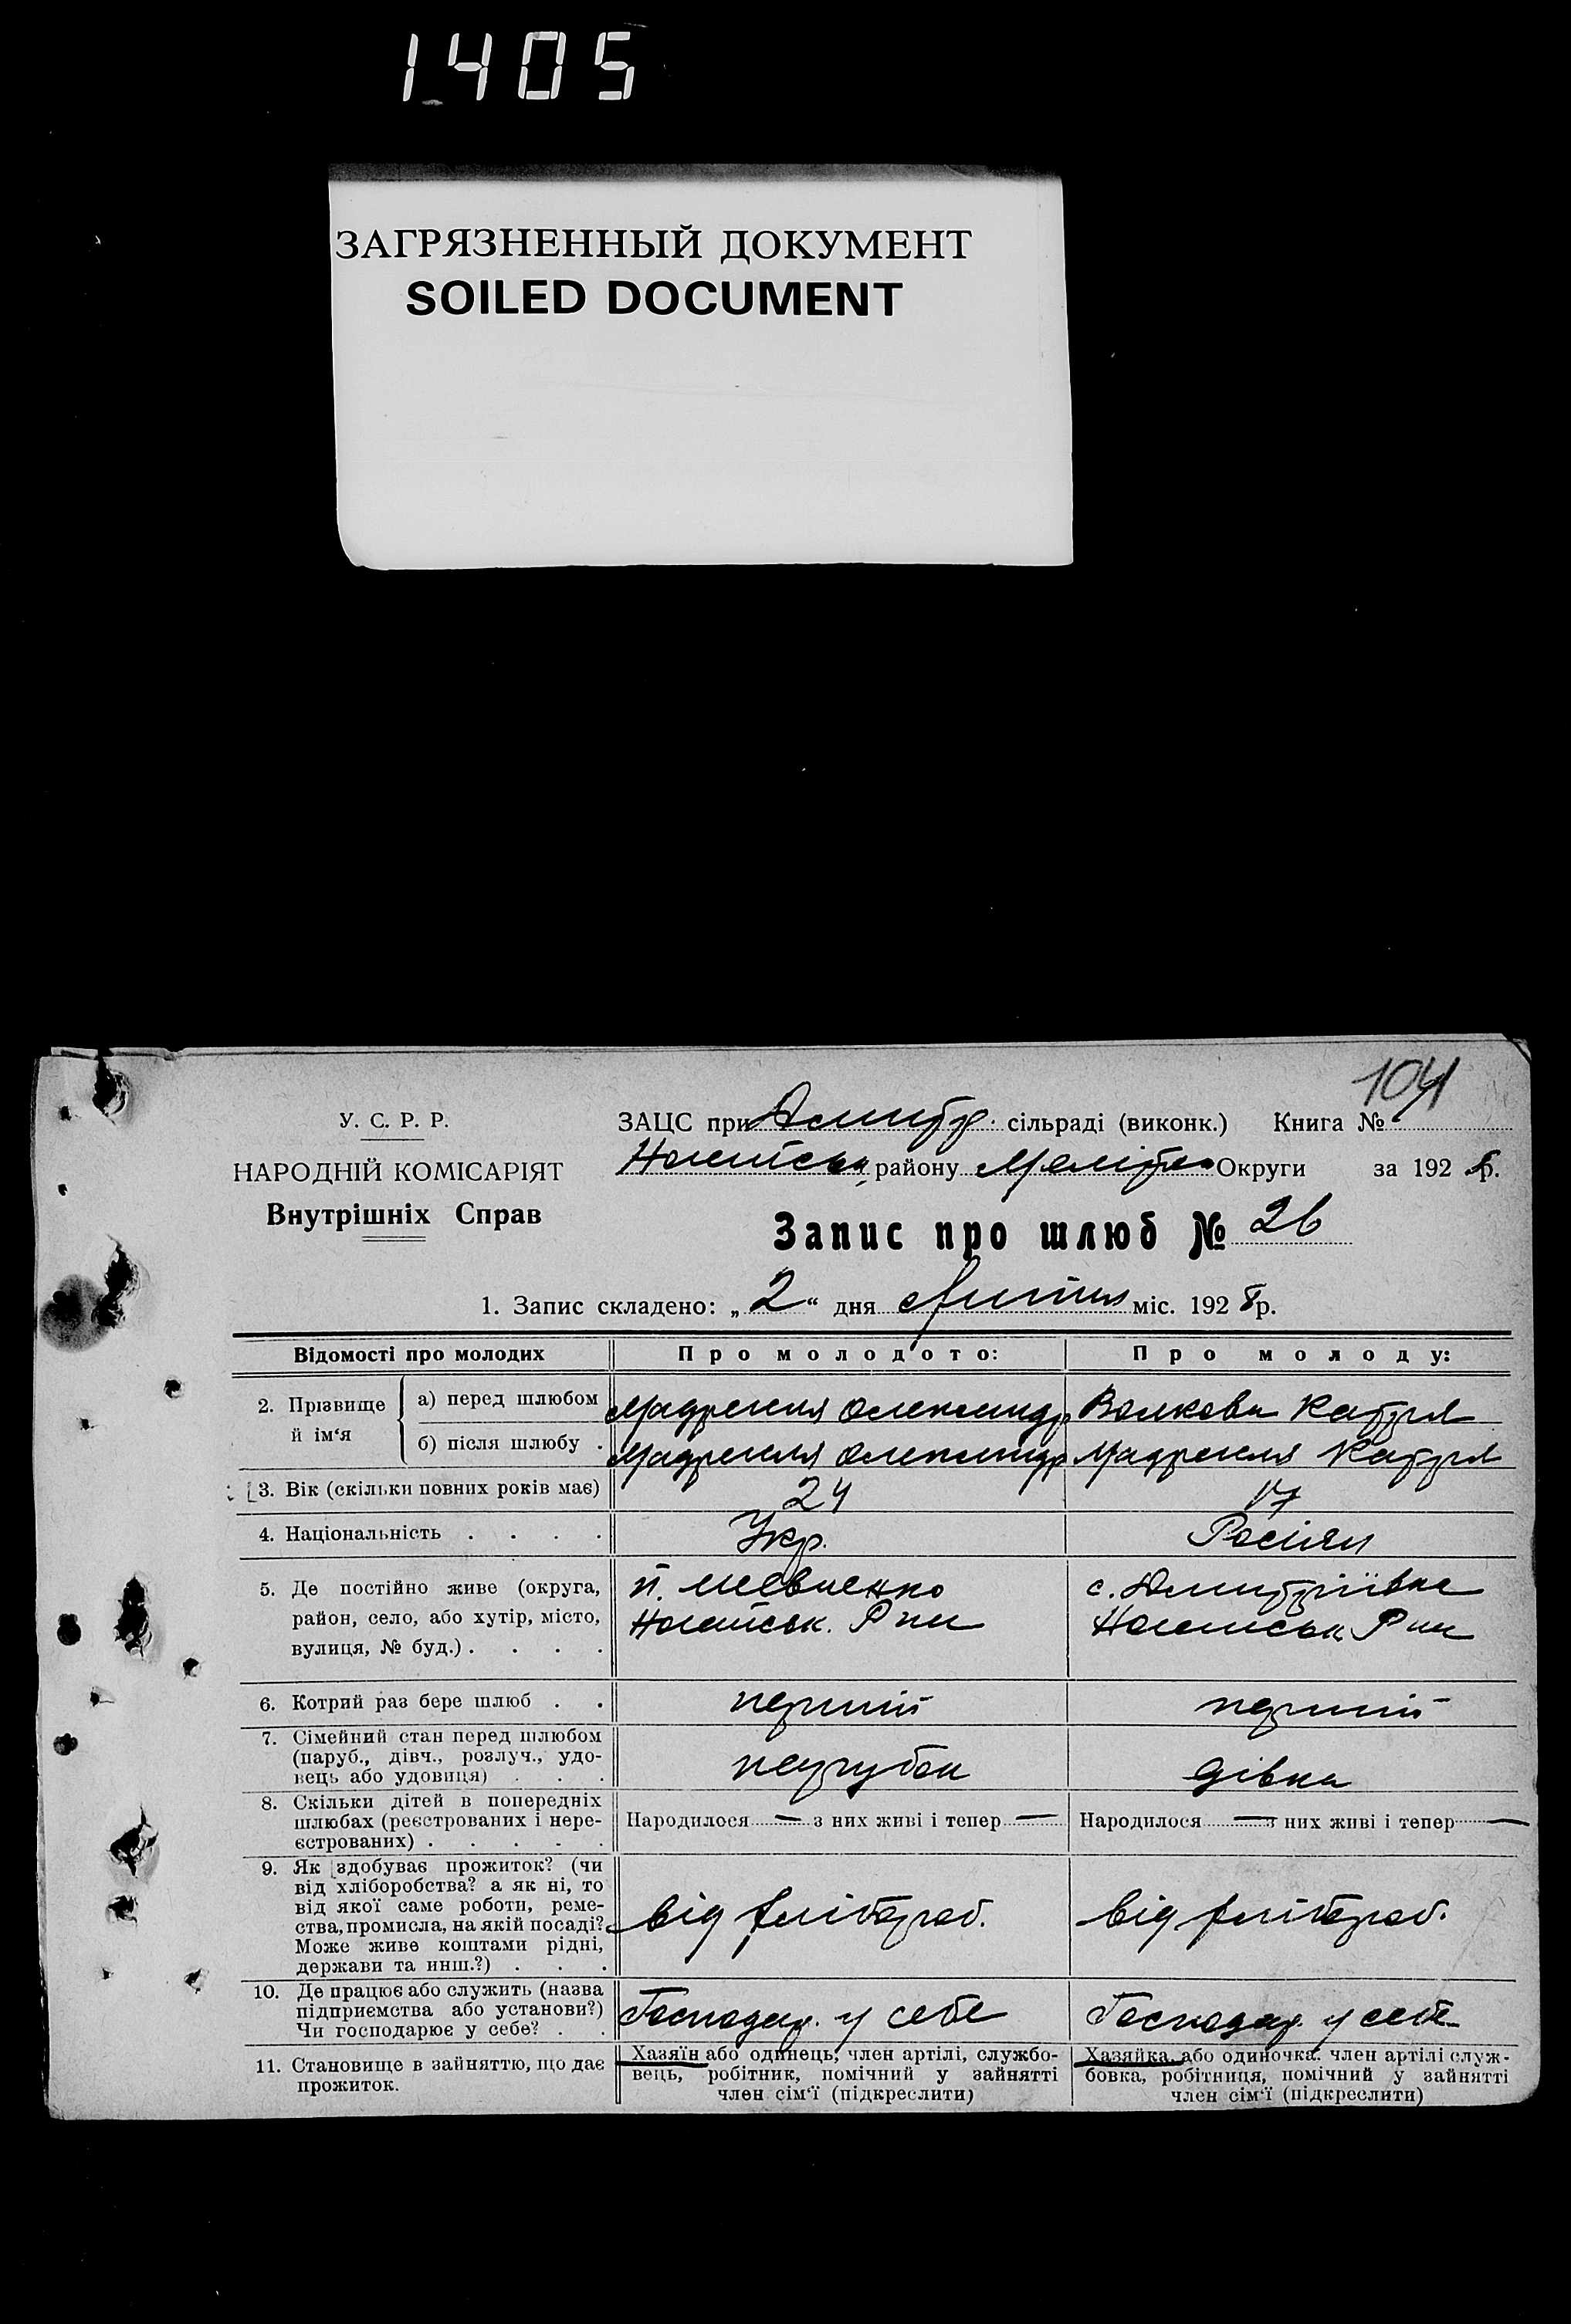 1405
ЗАГРЯЗНЕННЫЙ ДОКУМЕНТ
SOILED DOCUMENT
104
У. С. Р. Р.
ЗАЦС при Дмитр. сільраді (виконк.) Книга №
НАРОДНІЙ КОМІСАРІЯТ
Ногайськ району Меліт Округи за 192 8 р.
Внутрішніх Справ
Запис про шлюб № 26
1. Запис складено: „2“ дня Липня міс. 192 8 р.
Відомості про молодих Про молодого: Про молоду:
2. Прізвище й ім‘я
а) перед шлюбом Олександр Волкова Катря
б) після шлюбу . Олександр Катря
3. Вік (скільки повних років має) 24 17
4. Національність . . . . Укр. Росіян
5. Де постійно живе (округа, район, село, або хутір, місто, вулиця, № буд.) . . . .
п. Шевченко
Ногайськ. Р ну
с. Дмитріївка
Ногайськ Р ну
6. Котрий раз бере шлюб . . перший перший
7. Сімейний стан перед шлюбом
(паруб., дівч., розлуч., удо-
вець або удовиця) . . .
парубок дівка
8. Скільки дітей в попередніх
шлюбах (реєстрованих і нере-
єстрованих) . . . . .
Народилося — з них живі і тепер — Народилося — з них живі і тепер —
9. Як здобуває прожиток? (чи
від хліборобства? а як ні, то
від якої саме роботи, реме-
ства, промисла, на якій посаді?
Може живе коштами рідні,
держави та инш.?) . . .
від хлібороб. від хлібороб.
10. Де працює або служить (назва
підприємства або установи?)
Чи господарює у себе? . .
Господар. у себе Господар. у себе
11. Становище в зайняттю, що дає
прожиток.
Хазяїн або одинець, член артілі, службо-
вець, робітник, помічний у зайнятті
член сім‘ї (підкреслити)
Хазяйка або одиночка. член артілі служ-
бовка, робітниця, помічний у зайнятті
член сім‘ї (підкреслити)